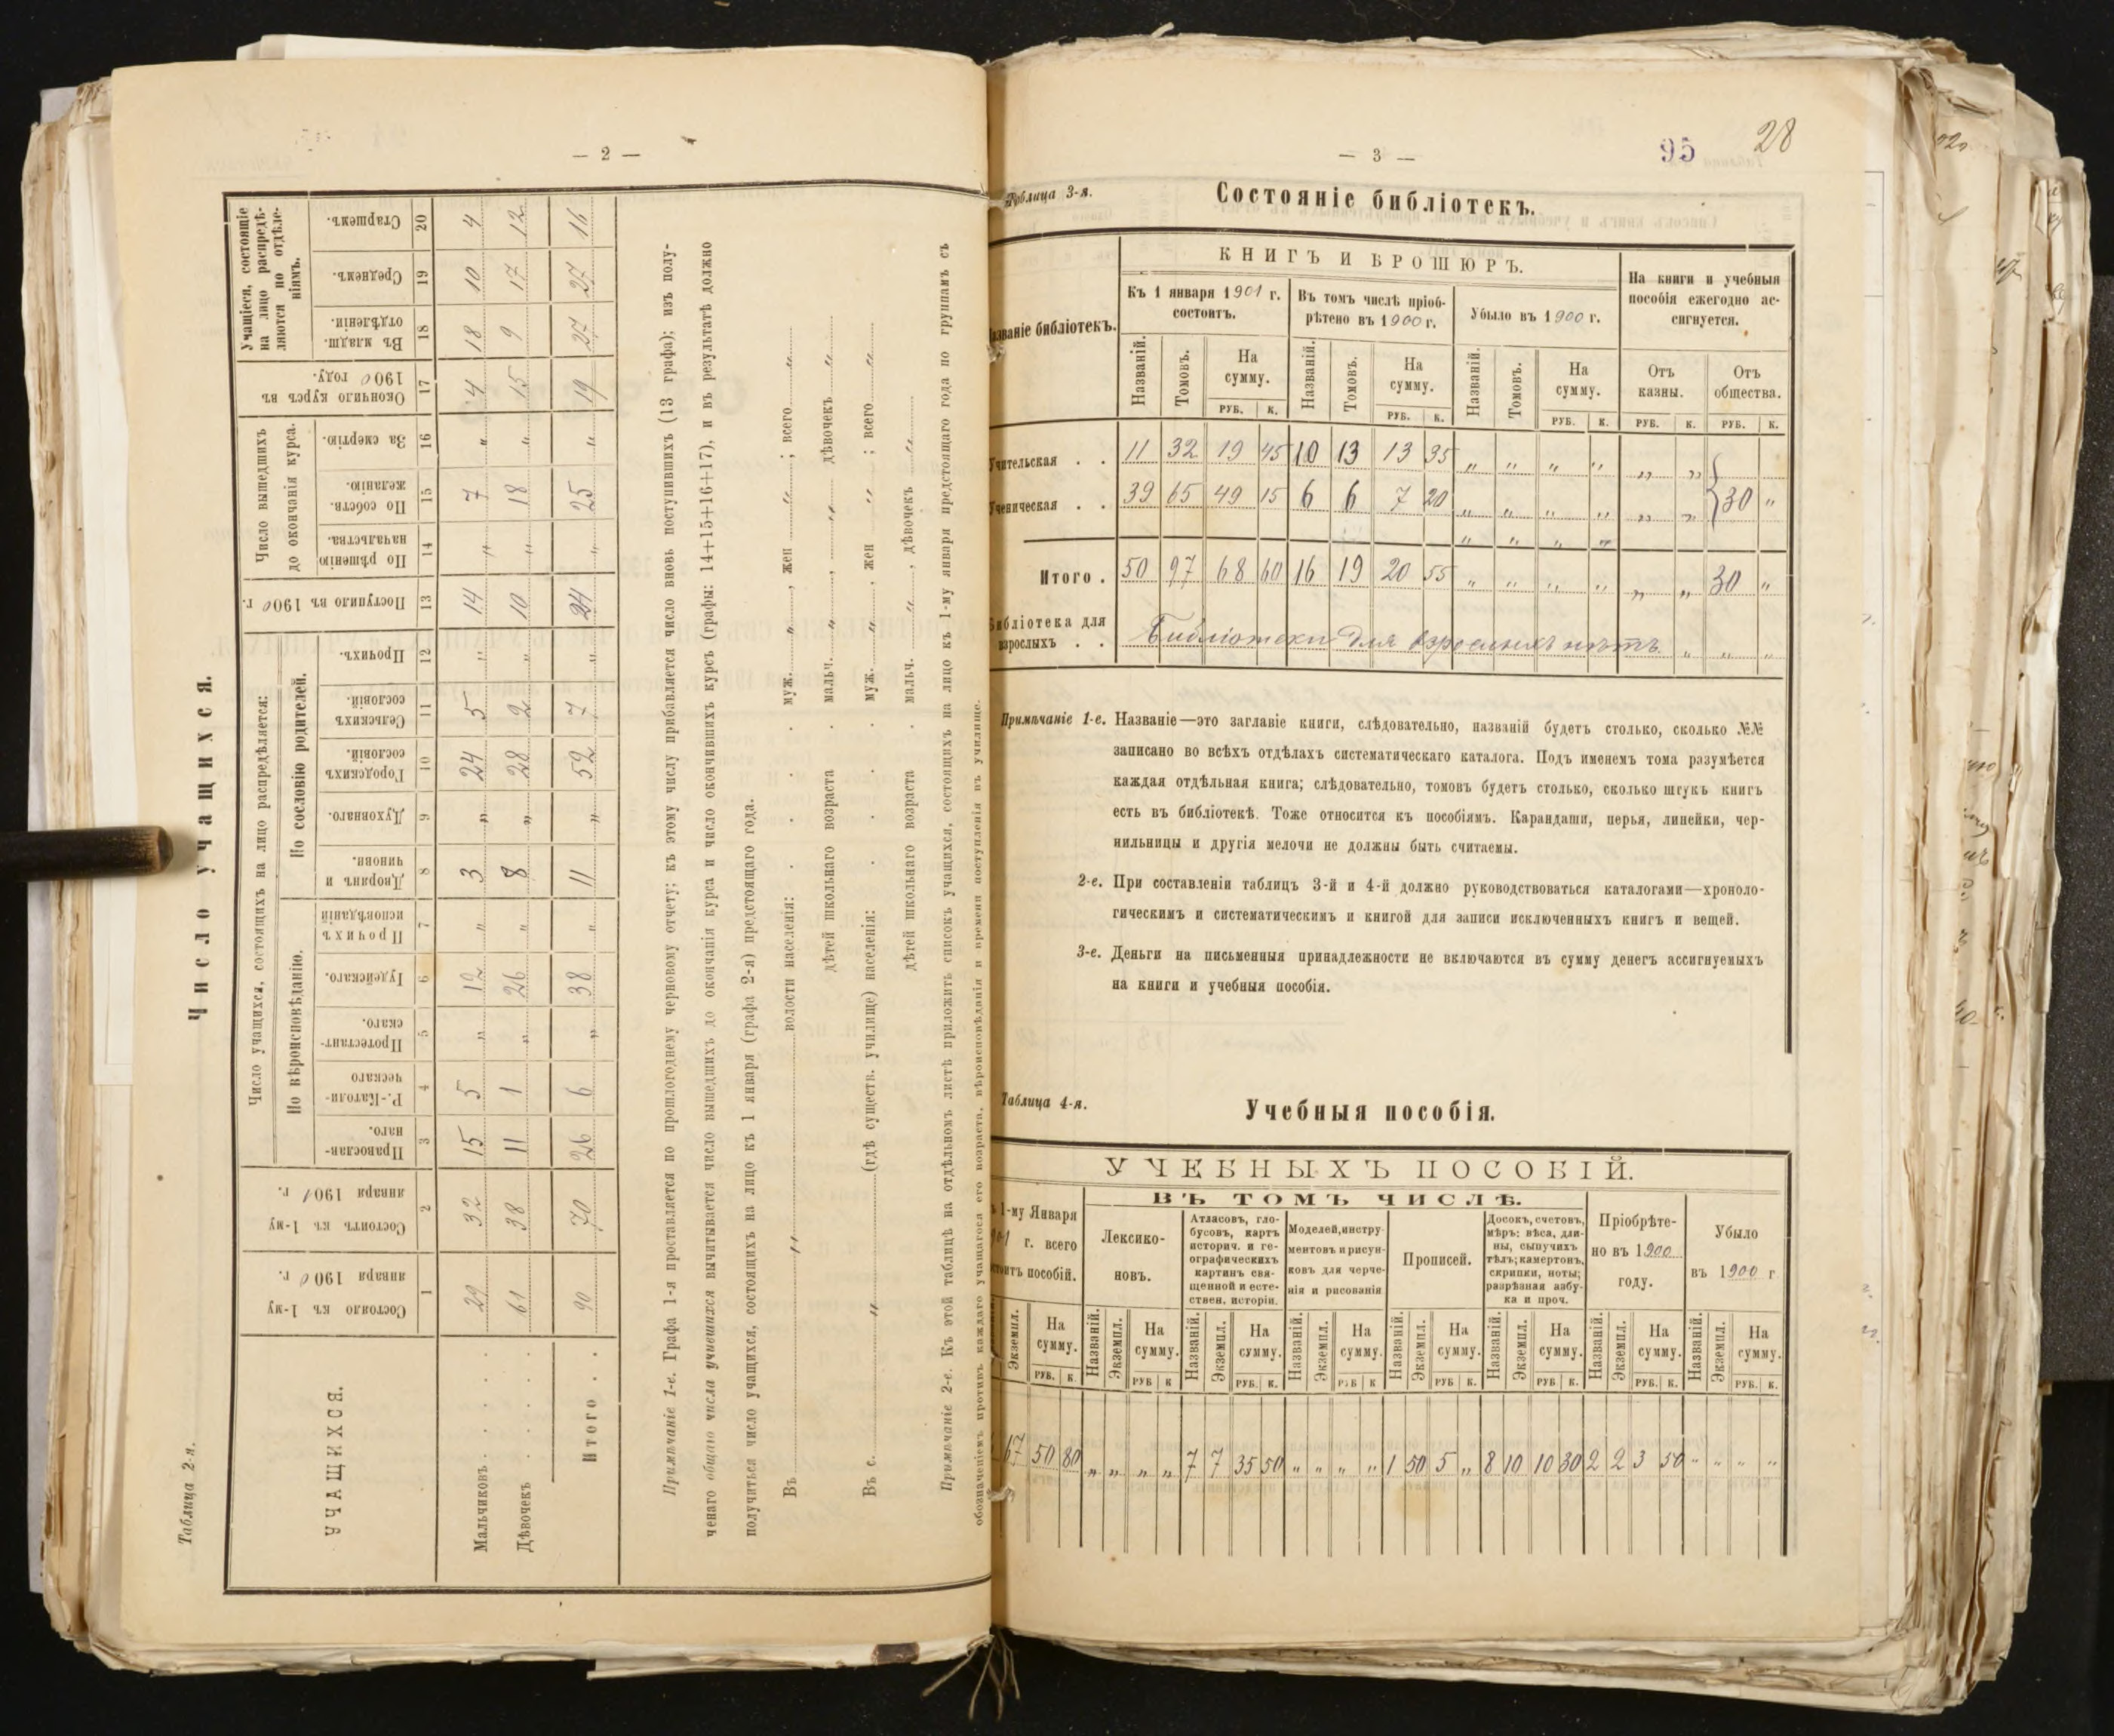 — 2 —
Таблица 2-я.
Число учащихся.
УЧАЩИХСЯ.
Число учащихся, состоящихъ на лицо распредѣляется:
По вѣроисповѣданію.
По сословію родителей.
Число вышедшихъ
до окончанія курса.
Учащіеся, состоящіе
на лицо распредѣ-
ляются по отдѣле-
ніямъ.
Состояло къ 1-му
января 1900 г.
Состоитъ къ 1-му
января 1901 г.
Православ-
наго.
Р.-Католи-
ческаго
Протестант-
скаго.
Іудейскаго.
Прочихъ
исповѣданій
Дворянъ и
чиновн.
Духовнаго.
Городскихъ
сословій.
Сельскихъ
сословій.
Прочихъ.
Поступило въ 1900 г.
По рѣшенію
начальства.
По собств.
желанію.
За смертію.
Окончило курсъ въ
1900 году.
Въ младш.
отдѣленіи.
Среднемъ.
Старшемъ.
1 2 3 4 5 6 7 8 9 10 11 12 13 14 15 16 17 18 19 20
Мальчиковъ . . . . 29 32 15 5 „ 12 „ 3 „ 24 5 „ 14 „ 7 „ 4 18 10 4
Дѣвочекъ . . . . . 61 38 11 1 „ 26 „ 8 „ 28 2 „ 10 „ 18 „ 15 9 17 12
Итого . . 90 70 26 6 „ 38 „ 11 „ 52 7 „ 24 „ 25 „ 19 27 27 16
Примѣчаніе 1-е. Графа 1-я проставляется по прошлогоднему черновому отчету; къ этому числу прибавляется число вновь поступившихъ (13 графа); изъ полу-
ченаго общаго числа учившихся вычитывается число вышедшихъ до окончанія курса и число окончившихъ курсъ (графы: 14+15+16+17), и въ результатѣ должно
получиться число учащихся, состоящихъ на лицо къ 1 января (графа 2-я) предстоящаго года.
Въ „ волости населенія: . . . муж. „ , жен „ ; всего „
дѣтей школьнаго возраста . мальч. „ , „ дѣвочекъ „
Въ с. „ (гдѣ существ. училище) населенія: . . . муж. „ , жен „ ; всего „
дѣтей школьнаго возраста . мальч. „ , дѣвочекъ „
Примѣчаніе 2-е. Къ этой таблицѣ на отдѣльномъ листѣ приложить списокъ учащихся, состоящихъ на лицо къ 1-му января предстоящаго года по групамъ съ
обозначеніемъ противъ каждаго учащагося его возраста, вѣроисповѣданія и времени поступленія въ училище.
— 3 —
95
28
Таблица 3-я.
Состояніе библіотекъ.
Названіе библіотекъ.
КНИГЪ И БРОШЮРЪ.
Къ 1 января 1901 г.
состоитъ.
Въ томъ числѣ пріоб-
рѣтено въ 1900 г.
Убыло въ 1900 г.
На книги и учебныя
пособія ежегодно ас-
сигнуется.
Названій. Томовъ. На сумму. Названій. Томовъ. На сумму. Названій. Томовъ. На сумму. Отъ казны. Отъ общества.
РУБ. К. РУБ. К. РУБ. К. РУБ. К. РУБ. К.
Учительская . . 11 32 19 45 10 13 13 35 „ „ „ „ „ „
Ученическая . . 39 65 49 15 6 6 7 20 „ „ „ „ „ „ 30 „
„ „ „ „
Итого . 50 97 68 60 16 19 20 55 „ „ „ „ „ „ 30 „
Библіотека для
взрослыхъ . . Библіотеки для взрослыхъ нѣтъ. „ „ „
Примѣчаніе 1-е. Названіе—это заглавіе книги, слѣдовательно, названій будетъ столько, сколько №№
записано во всѣхъ отдѣлахъ систематическаго каталога. Подъ именемъ тома разумѣется
каждая отдѣльная книга; слѣдовательно, томовъ будетъ столько, сколько штукъ книгъ
есть въ библіотекѣ. Тоже относится къ пособіямъ. Карандаши, перья, линейки, чер-
нильницы и другія мелочи не должны быть считаемы.
2-е. При составленіи таблицъ 3-й и 4-й должно руководствоваться каталогами—хроноло-
гическимъ и систематическимъ и книгой для записи исключенныхъ книгъ и вещей.
3-е. Деньги на письменныя принадлежности не включаются въ сумму денегъ ассигнуемыхъ
на книги и учебныя пособія.
Таблица 4-я.
Учебныя пособія.
УЧЕБНЫХЪ ПОСОБІЙ.
ВЪ ТОМЪ ЧИСЛѢ.
1-му Января
г. всего
пособій.
Лексико-
новъ.
Атласовъ, гло-
бусовъ, картъ
историч. и ге-
ографическихъ
картинъ свя-
щенной и есте-
ствен. исторіи.
Моделей, инстру-
ментовъ и рисун-
ковъ для черче-
нія и рисованія
Прописей.
Досокъ, счетовъ,
мѣръ: вѣса, дли-
ны, сыпучихъ
тѣлъ; камертонъ,
скрипки, ноты;
разрѣзная азбу-
ка и проч.
Пріобрѣте-
но въ 1900
году.
Убыло
въ 1900 г
Экземпл. На сумму. Названій. Экземпл. На сумму. Названій. Экземпл. На сумму. Названій. Экземпл. На сумму. Названій. Экземпл. На сумму. Названій. Экземпл. На сумму. Названій. Экземпл. На сумму. Названій. Экземпл. На сумму.
РУБ. К. РУБ К РУБ. К. РУБ К РУБ К. РУБ К. РУБ. К. РУБ. К.
67 50 80 „ „ „ „ 7 7 35 50 „ „ „ „ 1 50 5 „ 8 10 10 30 2 2 3 50 „ „ „ „